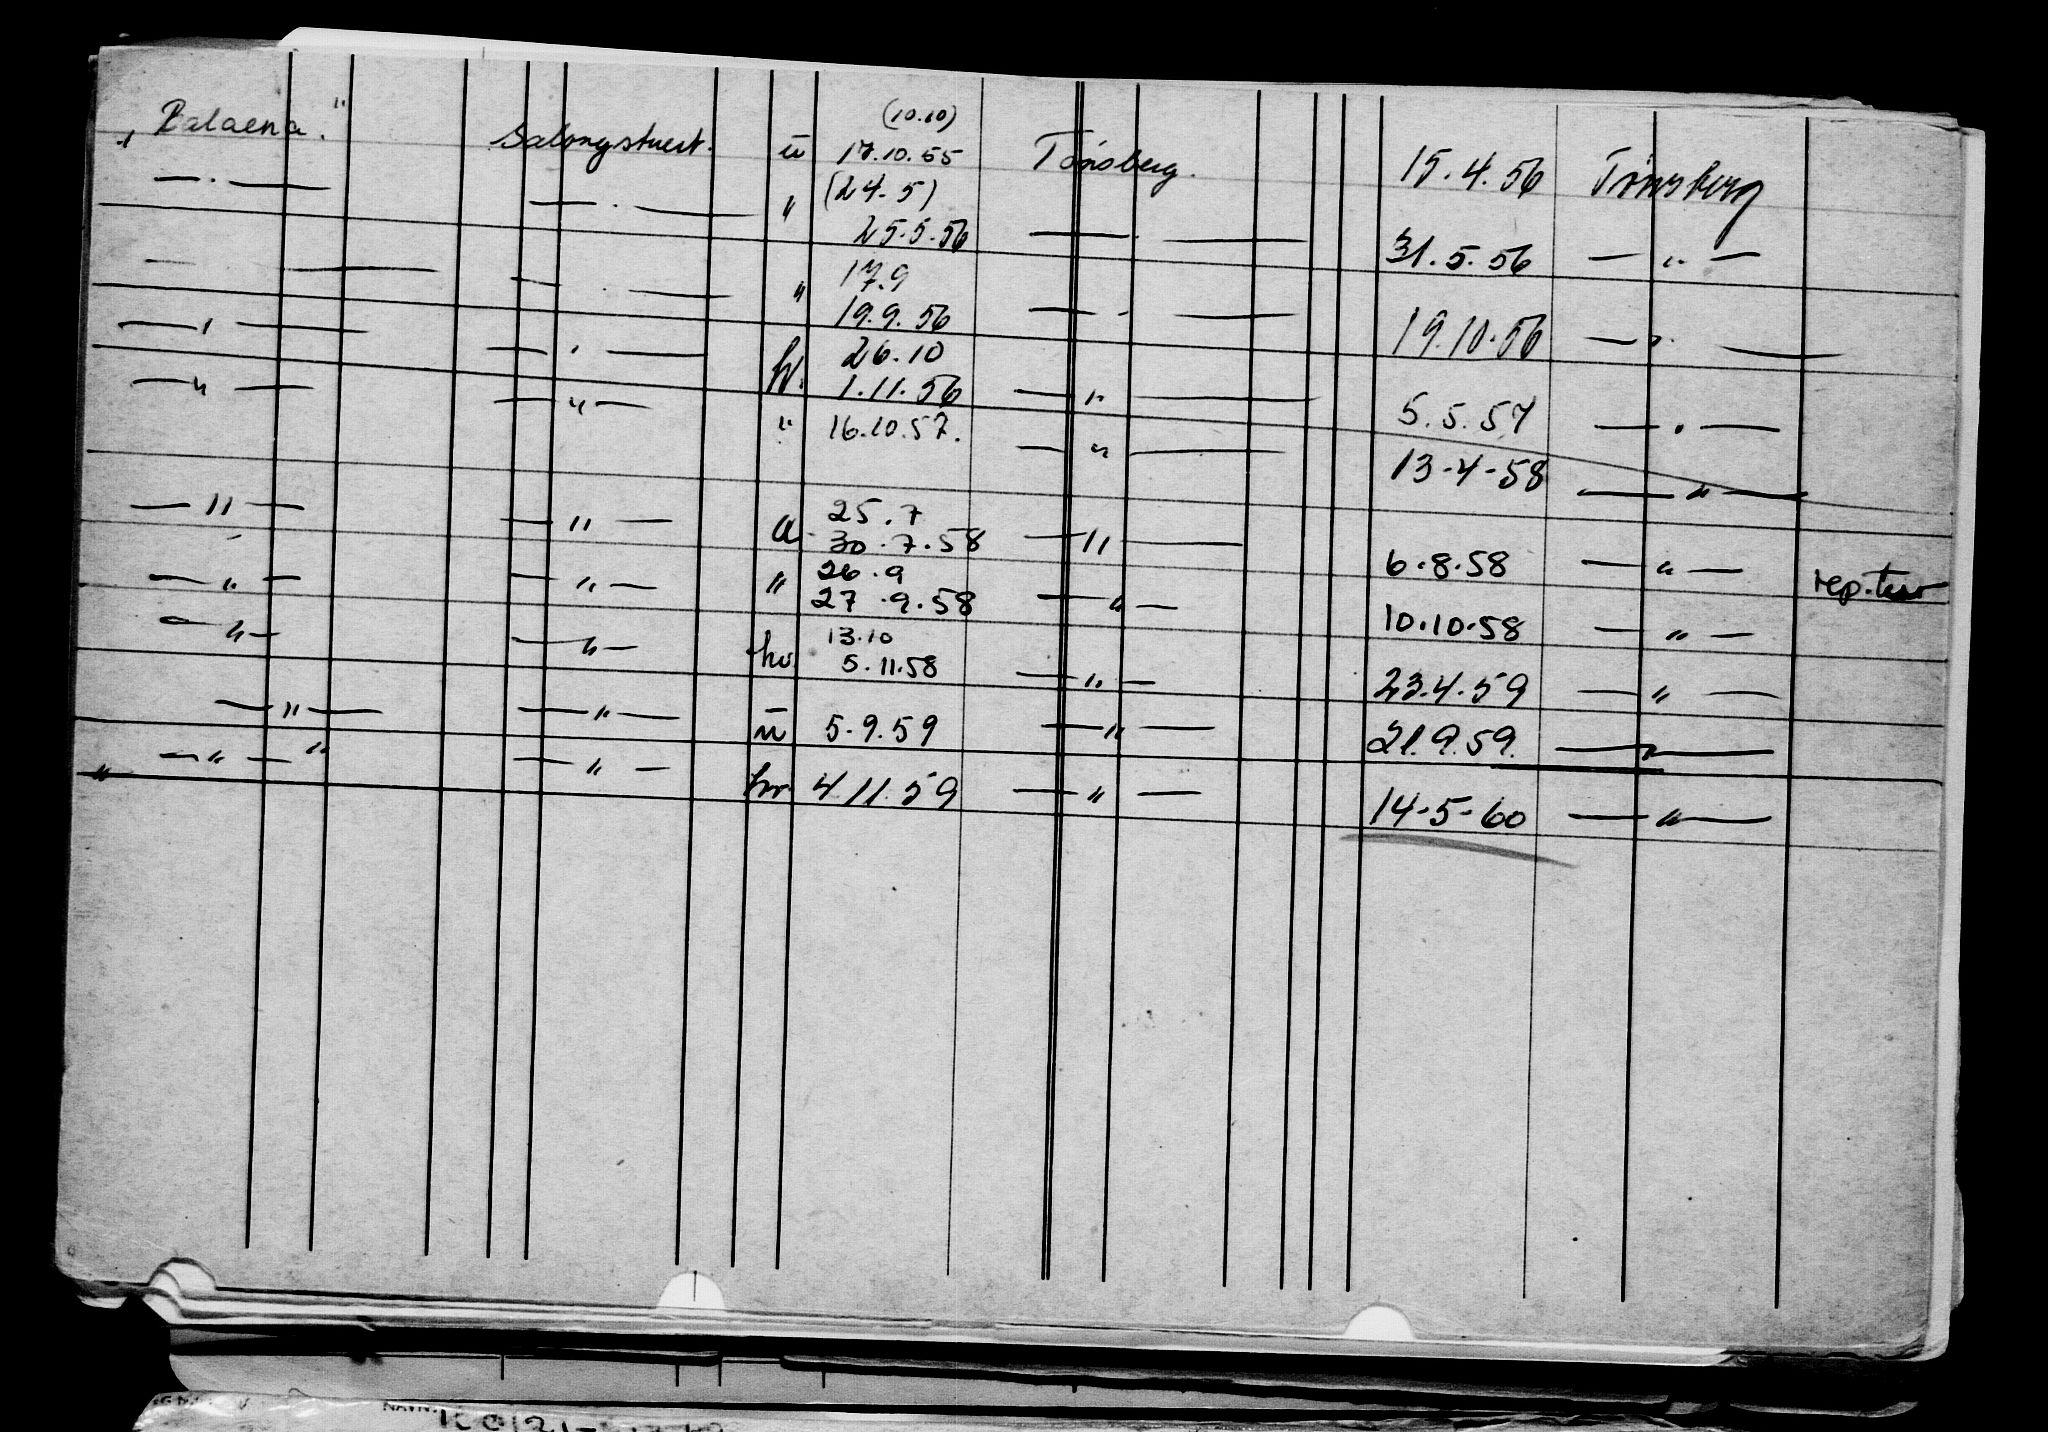 „Balaena." Salongstuert. u (10.10) 17.10.55 Tönsberg. 15.4.56 Tönsberg
— · — — · — " (24.5) 25.5.56 — · — 31.5.56 — " —
— — — · — " 17.9 19.9.56 — · — 19.10.56 — " —
— ı — — ' — hv. 26.10 1.11.56 — " — 5.5.57 — " —
— " — — " — " 16.10.57. — " — 13-4-58 — " —
— " — — " — a 25.7 30.7.58 — " — 6.8.58 — " —
— " — — " — " 26.9 27.9.58 — " — 10.10.58 — " — rep.
— " — — " — hv. 13.10 5.11.58 — " — 23.4.59 — " —
— " — — " — u 5.9.59 — " — 21.9.59. — " —
" — " — " — " — hv. 4.11.59 — " — 14-5-60 — " —